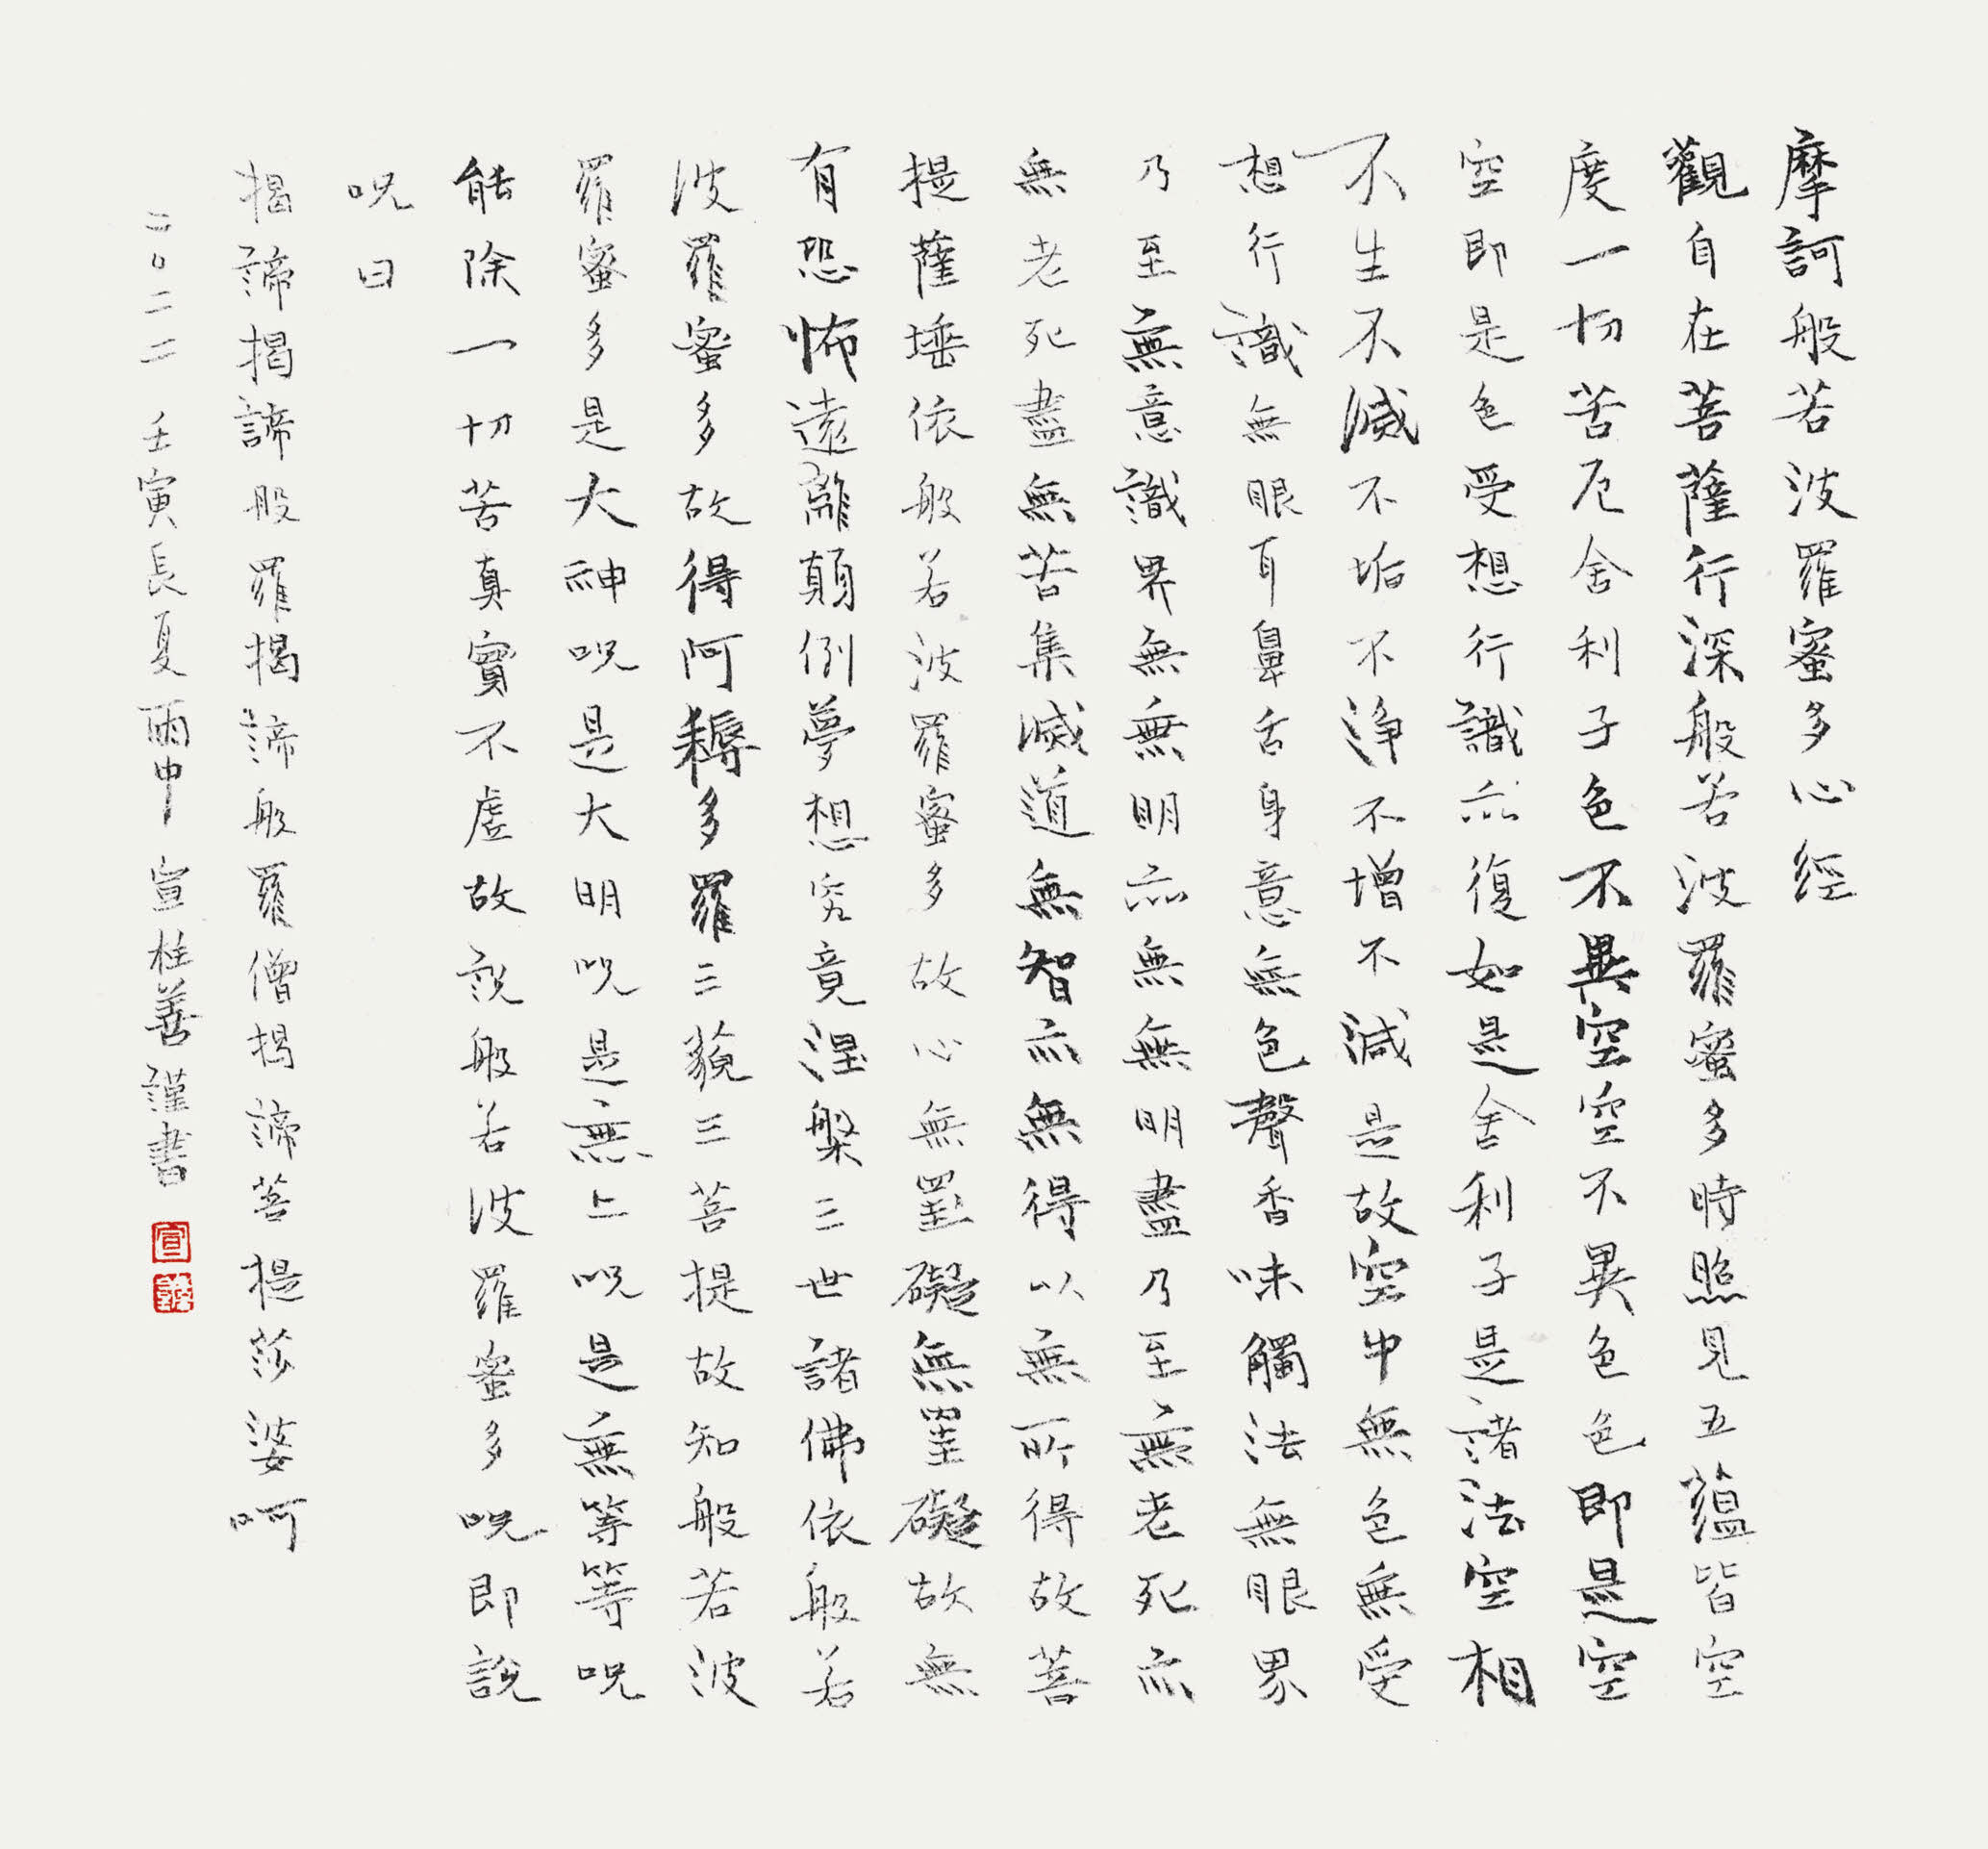 摩訶般若波羅蜜多心經
觀自在菩薩行深般若波羅蜜多時照見五蘊皆空
度一切苦厄舍利子色不異空空不異色色即是空
空即是色受想行識亦復如是舍利子是諸法空相
不生不滅不垢不淨不增不減是故空中無色無受
想行識無眼耳鼻舌身意無色聲香味觸法無眼界
乃至無意識界無無明亦無無明盡乃至無老死亦
無老死盡無苦集滅道無智亦無得以無所得故菩
提薩埵依般若波羅蜜多故心無罣礙無罣礙故無
有恐怖遠離顛倒夢想究竟涅槃三世諸佛依般若
波羅蜜多故得阿耨多羅三藐三菩提故知般若波
羅蜜多是大神呪是大明呪是無上呪是無等等呪
能除一切苦真實不虛故說般若波羅蜜多呪即說
呪曰
揭諦揭諦般羅揭諦般羅僧揭諦菩提莎婆呵
二〇二二 壬寅長夏雨中 宣柱善謹書
宣